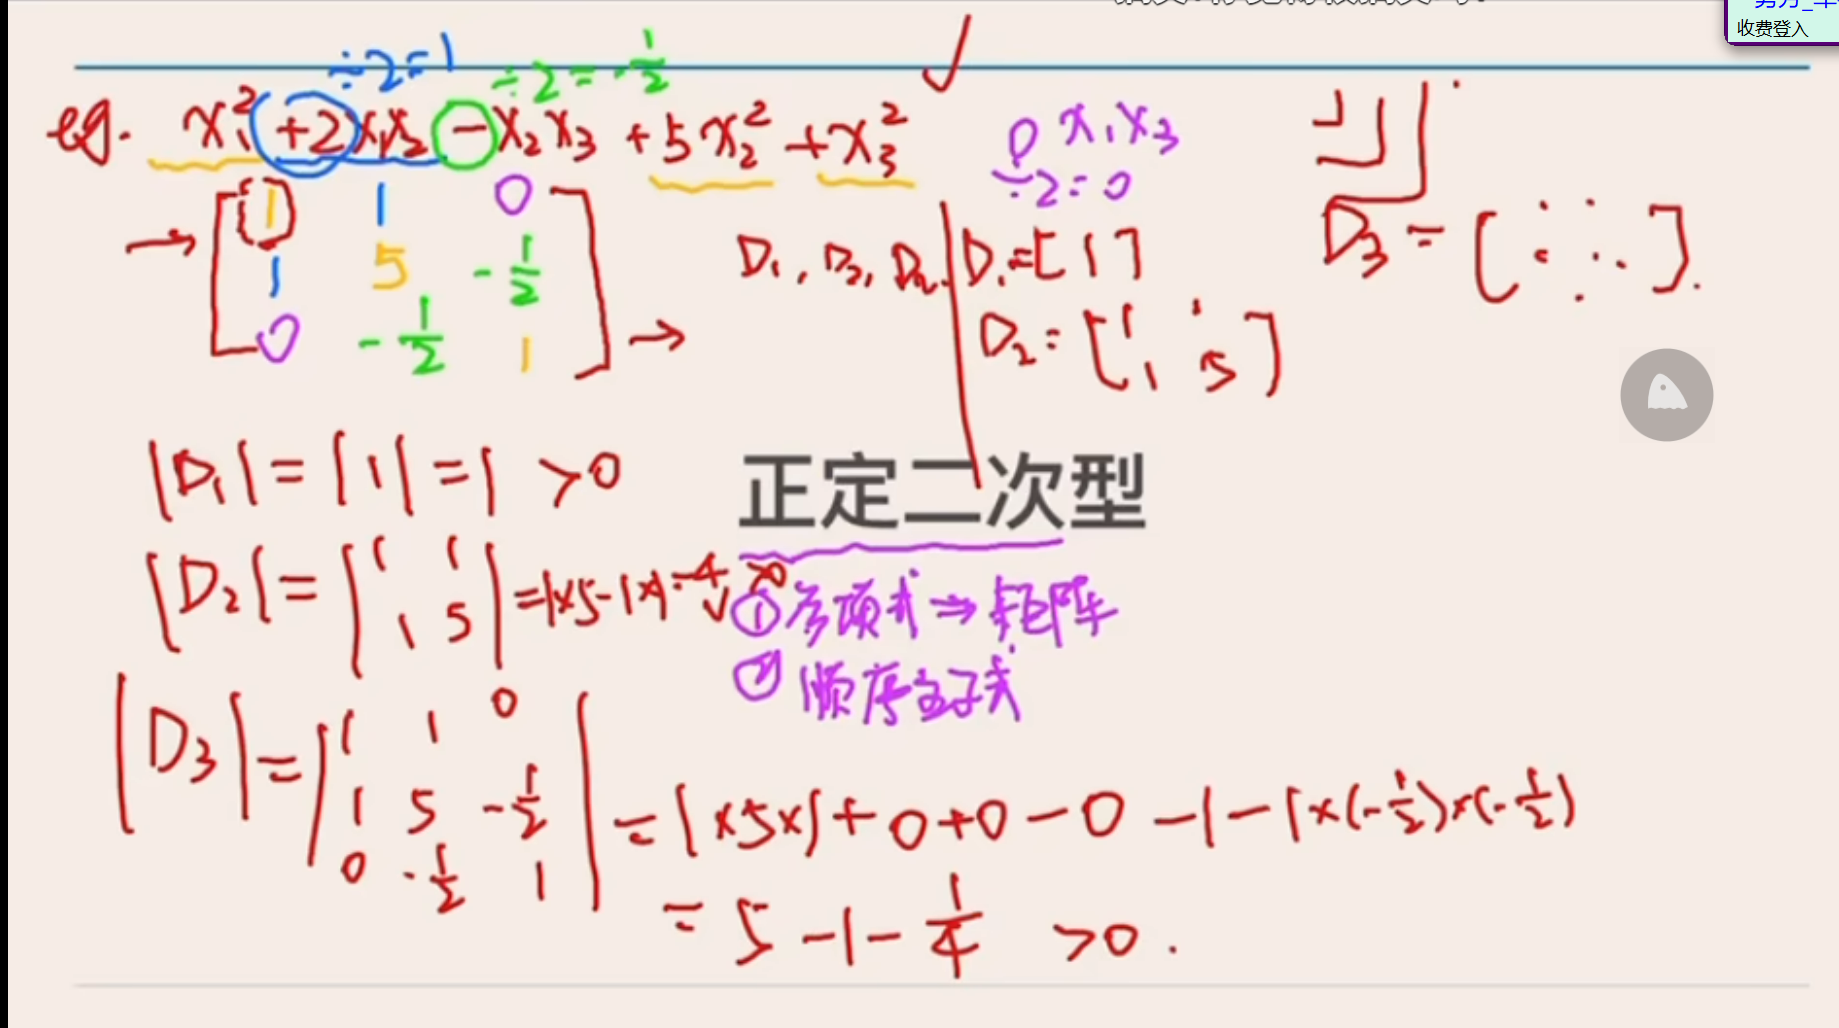 收费登入
÷2=1
÷2=-1/2
eg. x₁² +2x₁x₂ -x₂x₃ +5x₂² +x₃² ✓
0 x₁x₃
÷2=0
→ [ 1 1 0
1 5 -1/2
0 -1/2 1 ] →
D₁, D₂, D₃.
D₁=[1]
D₂=[1 1
1 5]
D₃=[ ⋱ ].
|D₁|=|1|=1 >0
正定二次型
|D₂|=|1 1
1 5|=1×5-1×1=4>0
①多项式⇒矩阵
②顺序主子式
|D₃|=|1 1 0
1 5 -1/2
0 -1/2 1|
=1×5×1+0+0-0-1-1×(-1/2)×(-1/2)
=5-1-1/4 >0.